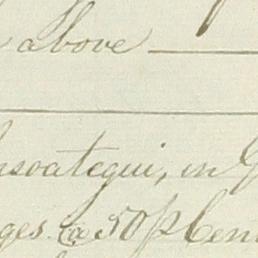 above
nsoategui, in G
ges @ 50 p Cent